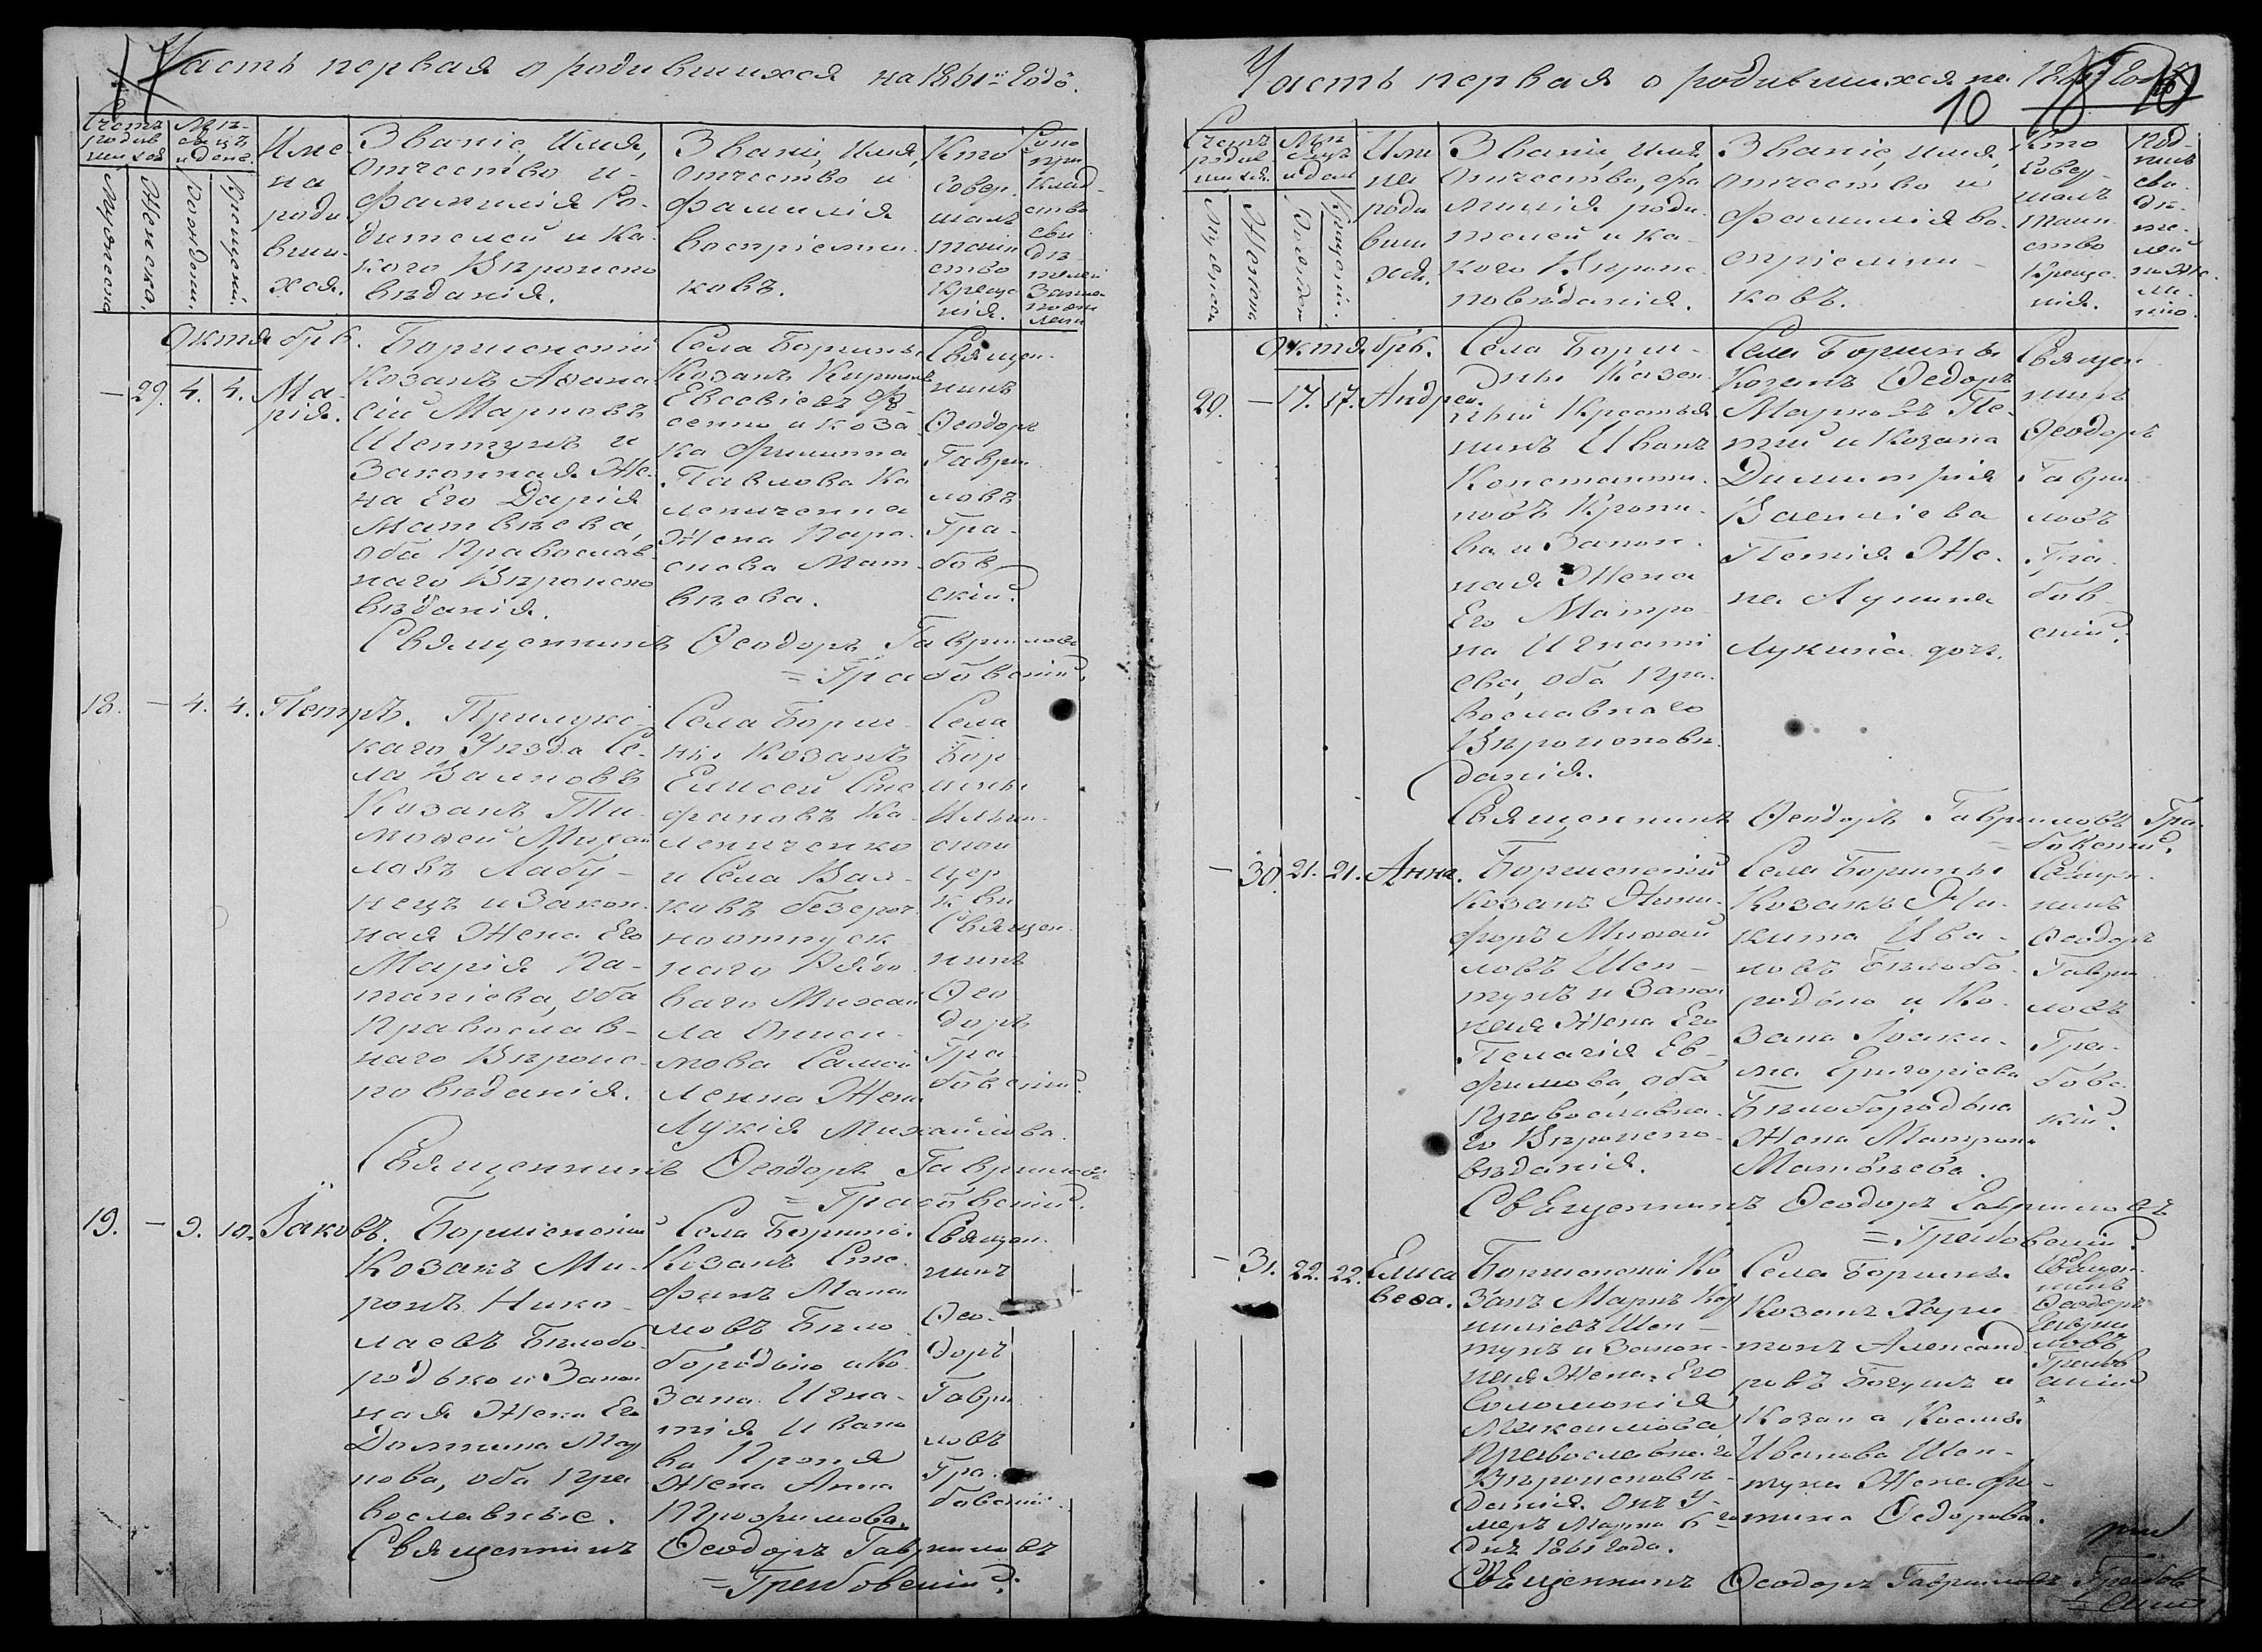 Часть первая о родившихся на 1861й Годъ.
Счетъ
родив
шихся
Мѣ-
сяцъ
и день.
Мужеска
Женска.
Рожденія.
Крещенія.
Име
на
роди
вши-
хся.
Званіе, Имя,
Отчество и
Фамилія Ро-
дителей и Ка-
кого Вѣроиспо
вѣданія.
Званіе, Имя,
Отчество и
Фамилія
воспріемни-
ковъ.
Кто
Совер.
шалъ
таин
ство
Креще
нія.
Октябрь.
— 29. 4. 4. Ма-
рія.
Боршенскій
Козакъ Афана
сій Марковъ
Шептунъ и
Законная Же-
на Его Дарія
Матвѣева,
Оба Православ
наго Вѣроиспо
вѣданія.
Села Боршны
Козакъ
Евсевіевъ
сенко и Коза
ка Филиппа
Павлова Ко
леиченка
Жена Пара-
скова Мат-
вѣева.
Священ-
никъ
Феодоръ
Гаври
ловъ
Гра-
бов
скій.
Священникъ Феодоръ Гавриловъ
= Грабовскій.
18. — 4. 4. Петръ.
Прилукс
каго Уѣзда Се-
ла Валковъ
Козакъ Ти-
мофей Михай
ловъ Лабу-
нецъ и Закон.
ная Жена Его
Марія По-
тапіева, Оба
Православ-
наго Вѣроис-
повѣданія.
Села Борш-
ны Козакъ
Елисей Сте
фановъ Ко-
леиченко
и Села Вал-
ковъ безсроч
ноотпуск
наго Рядо
ваго Михаи
ла Аниси-
мова Самой
ленка Жена
Лукія Михайлова.
Села
Бор
шны
Ильин-
ской
цер
кви
Священ.
никъ
Фео
доръ
Гра-
бовскій.
Священникъ Феодоръ Гавриловъ
= Грабовскій.
19. — 9. 10. Іаковъ.
Боршенскій
Козакъ Ми-
ронъ Нико-
лаевъ Бѣлобо-
родько и Закон
ная Жена Его
Домникія Мар
кова, Оба Пра
вославные.
Села Боршны
Козакъ Сте-
фанъ Мана
ловъ Бѣло
бородько и Ко-
зака Игна-
тія Ивано
ва Кроля
Жена Анна
Трофимова.
Священ.
никъ
Фео-
доръ
Гаври
ловъ
Гра-
бовскій.
Священникъ Феодоръ Гавриловъ
= Грабовскій.
Часть первая о родившихся на
10
Счетъ
родив
шихся.
Мѣ
сяцъ
и день
Мужеска
Женска
Рожден
Крещені.
Име
на
роди
вши
хся.
Званіе, Имя,
Отчество, Фа
милія роди-
телей и Ка-
кого Вѣроис-
повѣданія.
Званіе, Имя,
Отчество и
Фамилія во-
спріемни-
ковъ.
Кто
Совер-
шалъ
таин
ство
Креще-
нія.
Под-
пись
сви-
дѣ-
те-
лей
Октябрь.
20. — 17. 17. Андрей.
Села Борш-
ны Казен
ный Крестья
нинъ Иванъ
Константи-
новъ Кропи-
ва и Закон-
ная Жена
Его Матро
на Игнаті
ева, Оба Пра-
вославнаго
Вѣроисповѣ
данія.
Села Боршны
Козакъ Федоръ
Марковъ Пе-
тій и Козака
Димитрія
Василіева
Петія Же-
на Лукина
Лукина доч.
Священ
никъ
Феодоръ
Гаври
ловъ
Гра-
бов
скій.
Священникъ Феодоръ Гавриловъ Гра-
бовскій.
— 30. 21. 21. Анна.
Боршенскій
Козакъ Ники-
форъ Михай
ловъ Шеп-
тунъ и Закон
ная Жена Его
Пелагія Ев-
фимова, Оба
Православна-
го Вѣроиспо-
вѣданія.
Села Боршны
Козакъ Ни-
кита Ива-
новъ Бѣлобо-
родько и Ко-
зака Іоаки-
ма Григоріева
Бѣлобородька
Жена Матрона
Матвѣева.
Священ-
никъ
Феодоръ
Гаври
ловъ
Гра-
бовс
кій.
Священникъ Феодоръ Гавриловъ
= Грабовскій.
— 31. 22. 22. Елиса
вефа.
Боршенскій Ко
закъ Маркъ Кор
ниліевъ Шеп-
тунъ и Закон-
ная Жена Его
Соломонія
Максимова,
Православнаго
Вѣроисповѣ-
данія. Онъ У-
меръ Марта 6го
дня 1861 года.
Села Боршны
Козакъ Хари-
тонъ Александ
ровъ Богунъ и
Козака Космы
Иванова Шеп-
туна Жена Фо-
тина Федорова.
Священ-
никъ
Феодоръ
Гаври
ловъ
Грабов
скій
Священникъ Феодоръ Гавриловъ Грабов
= скій